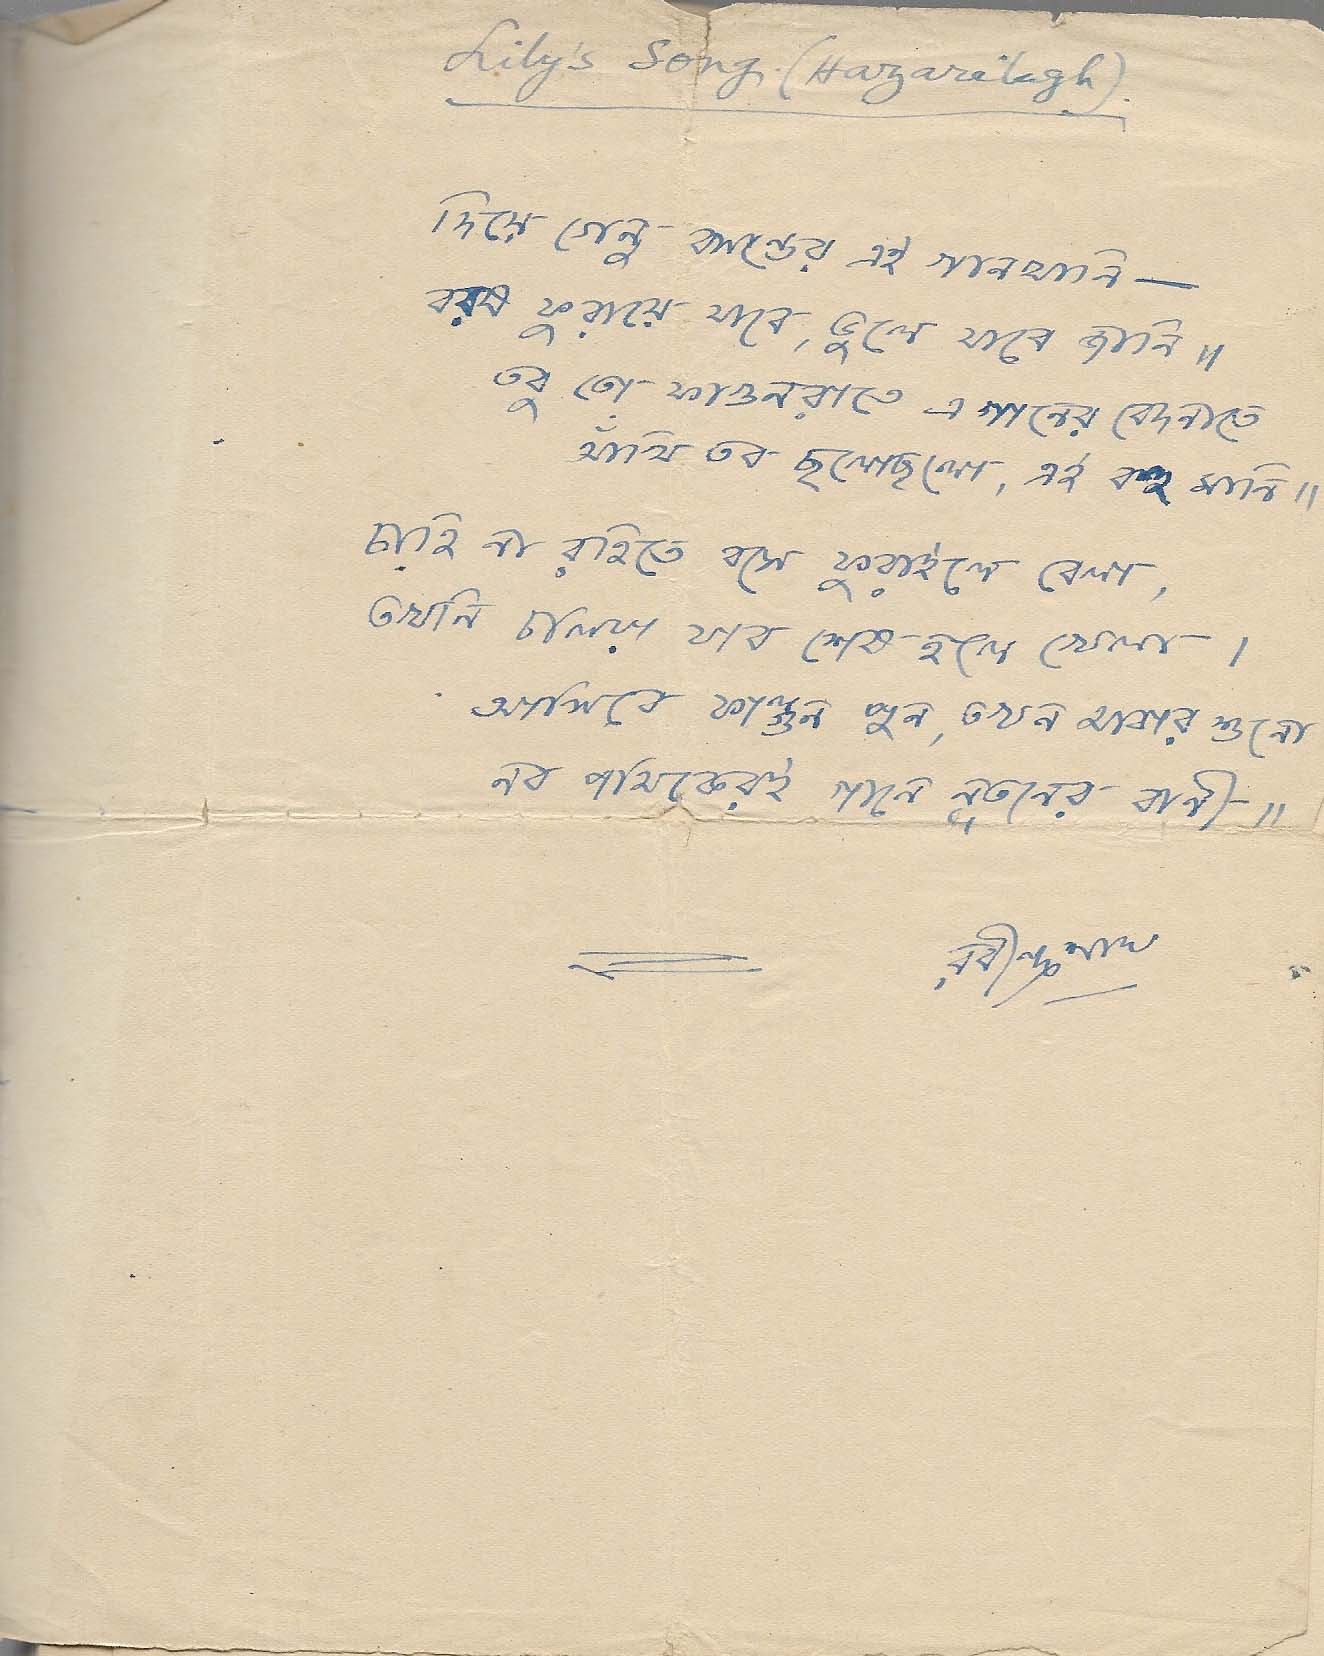 Lily's Song. (Hazaribagh).
দিয়ে গেনু বসন্তের এই গানখানি—
বরষ ফুরায়ে যাবে, ভুলে যাবে জানি॥
তবু তো ফাগুনরাতে এ গানের বেদনাতে
আঁখি তব ছলোছলো, এই বহু মানি॥
চাহি না রহিতে বসে ফুরাইলে বেলা,
তখনি চলিয়া যাব শেষ হলে খেলা।
আসিবে ফাল্গুন পুন, তখন আবার শুনো
নব পথিকেরই গানে নূতনের বাণী॥
রবীন্দ্রনাথ